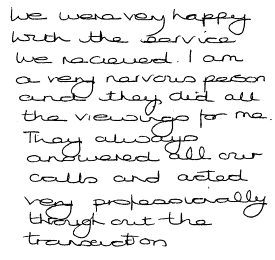 We were very happy
with the service
we recieved. I am
a very nervous person
and they did all
the viewings for me.
They always
answered all our
calls and acted
very professionally
through out the
transaction